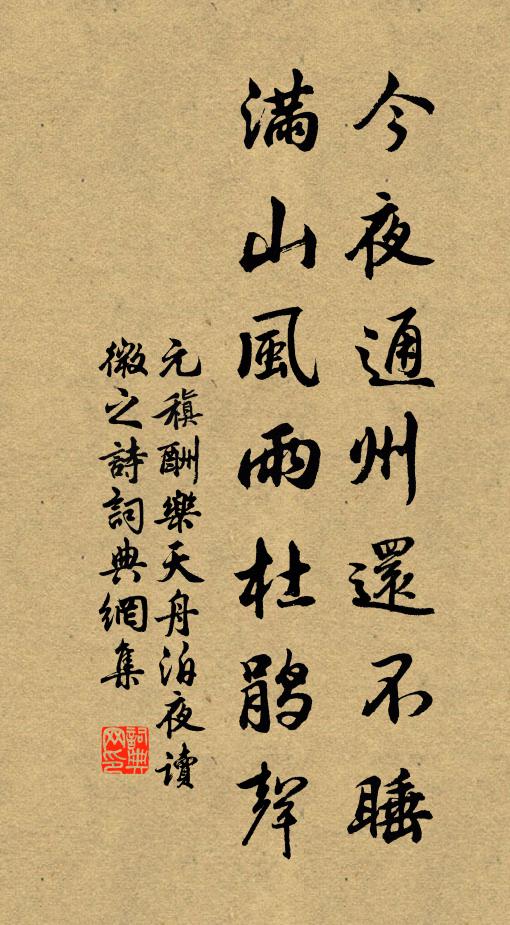 今夜通州還不睡
滿山風雨杜鵑聲
元稹酬樂天舟泊夜讀
微之詩詞典網集
詞典网印